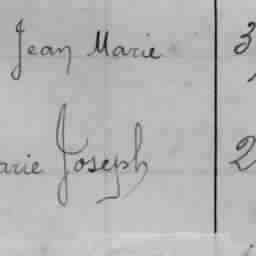 Jean Marie 3
arie Joseph 2